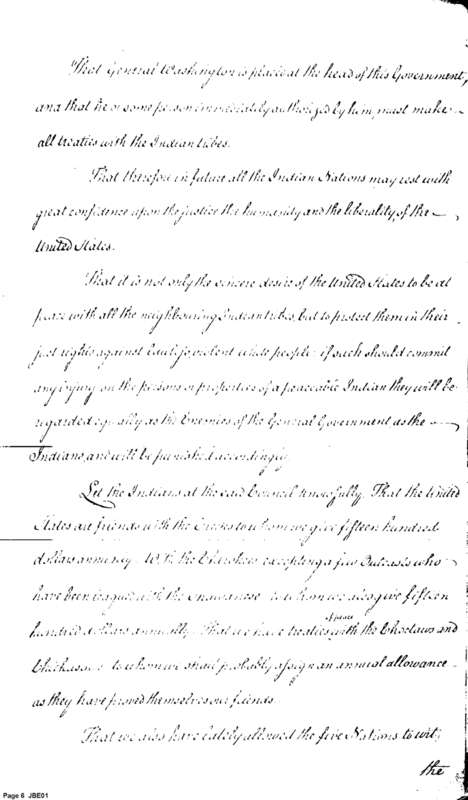 That General Washington is placed at the head of this Government,
and that he or some person immediately authorized by him, must make
all treaties with the Indian tribes.
That therefore in future all the Indian Nations may rest with
great confidence upon the justice the humanity and the liberality, of the
United States.
That it is not only the sincere desire of the United States to be at
peace with all the neighbouring Indian tribes, but to protect them in their
just rights against violent white people if such should commit
any injury on the persons or properties of a peaceable Indian they will be
regarded equally as the Enemies of the General Government as the
Indians, and will be punished accordingly.
Let the Indians at the said Council know fully, That the United
States are friends with the Creeks to whom we give fifteen hundred
dollars annually. With the Cherokees excepting a few Outcasts who
have been leagued with the Shawanese to whom we also give fifteen
hundred dollars annually. That we have treaties of peace with the Choctaws and
Chickasaws to whom we shall probably assign an annual allowance
as they have proved themselves our friends.
That we also have lately allowed the five Nations to wit,
the
Page 6 JBE01